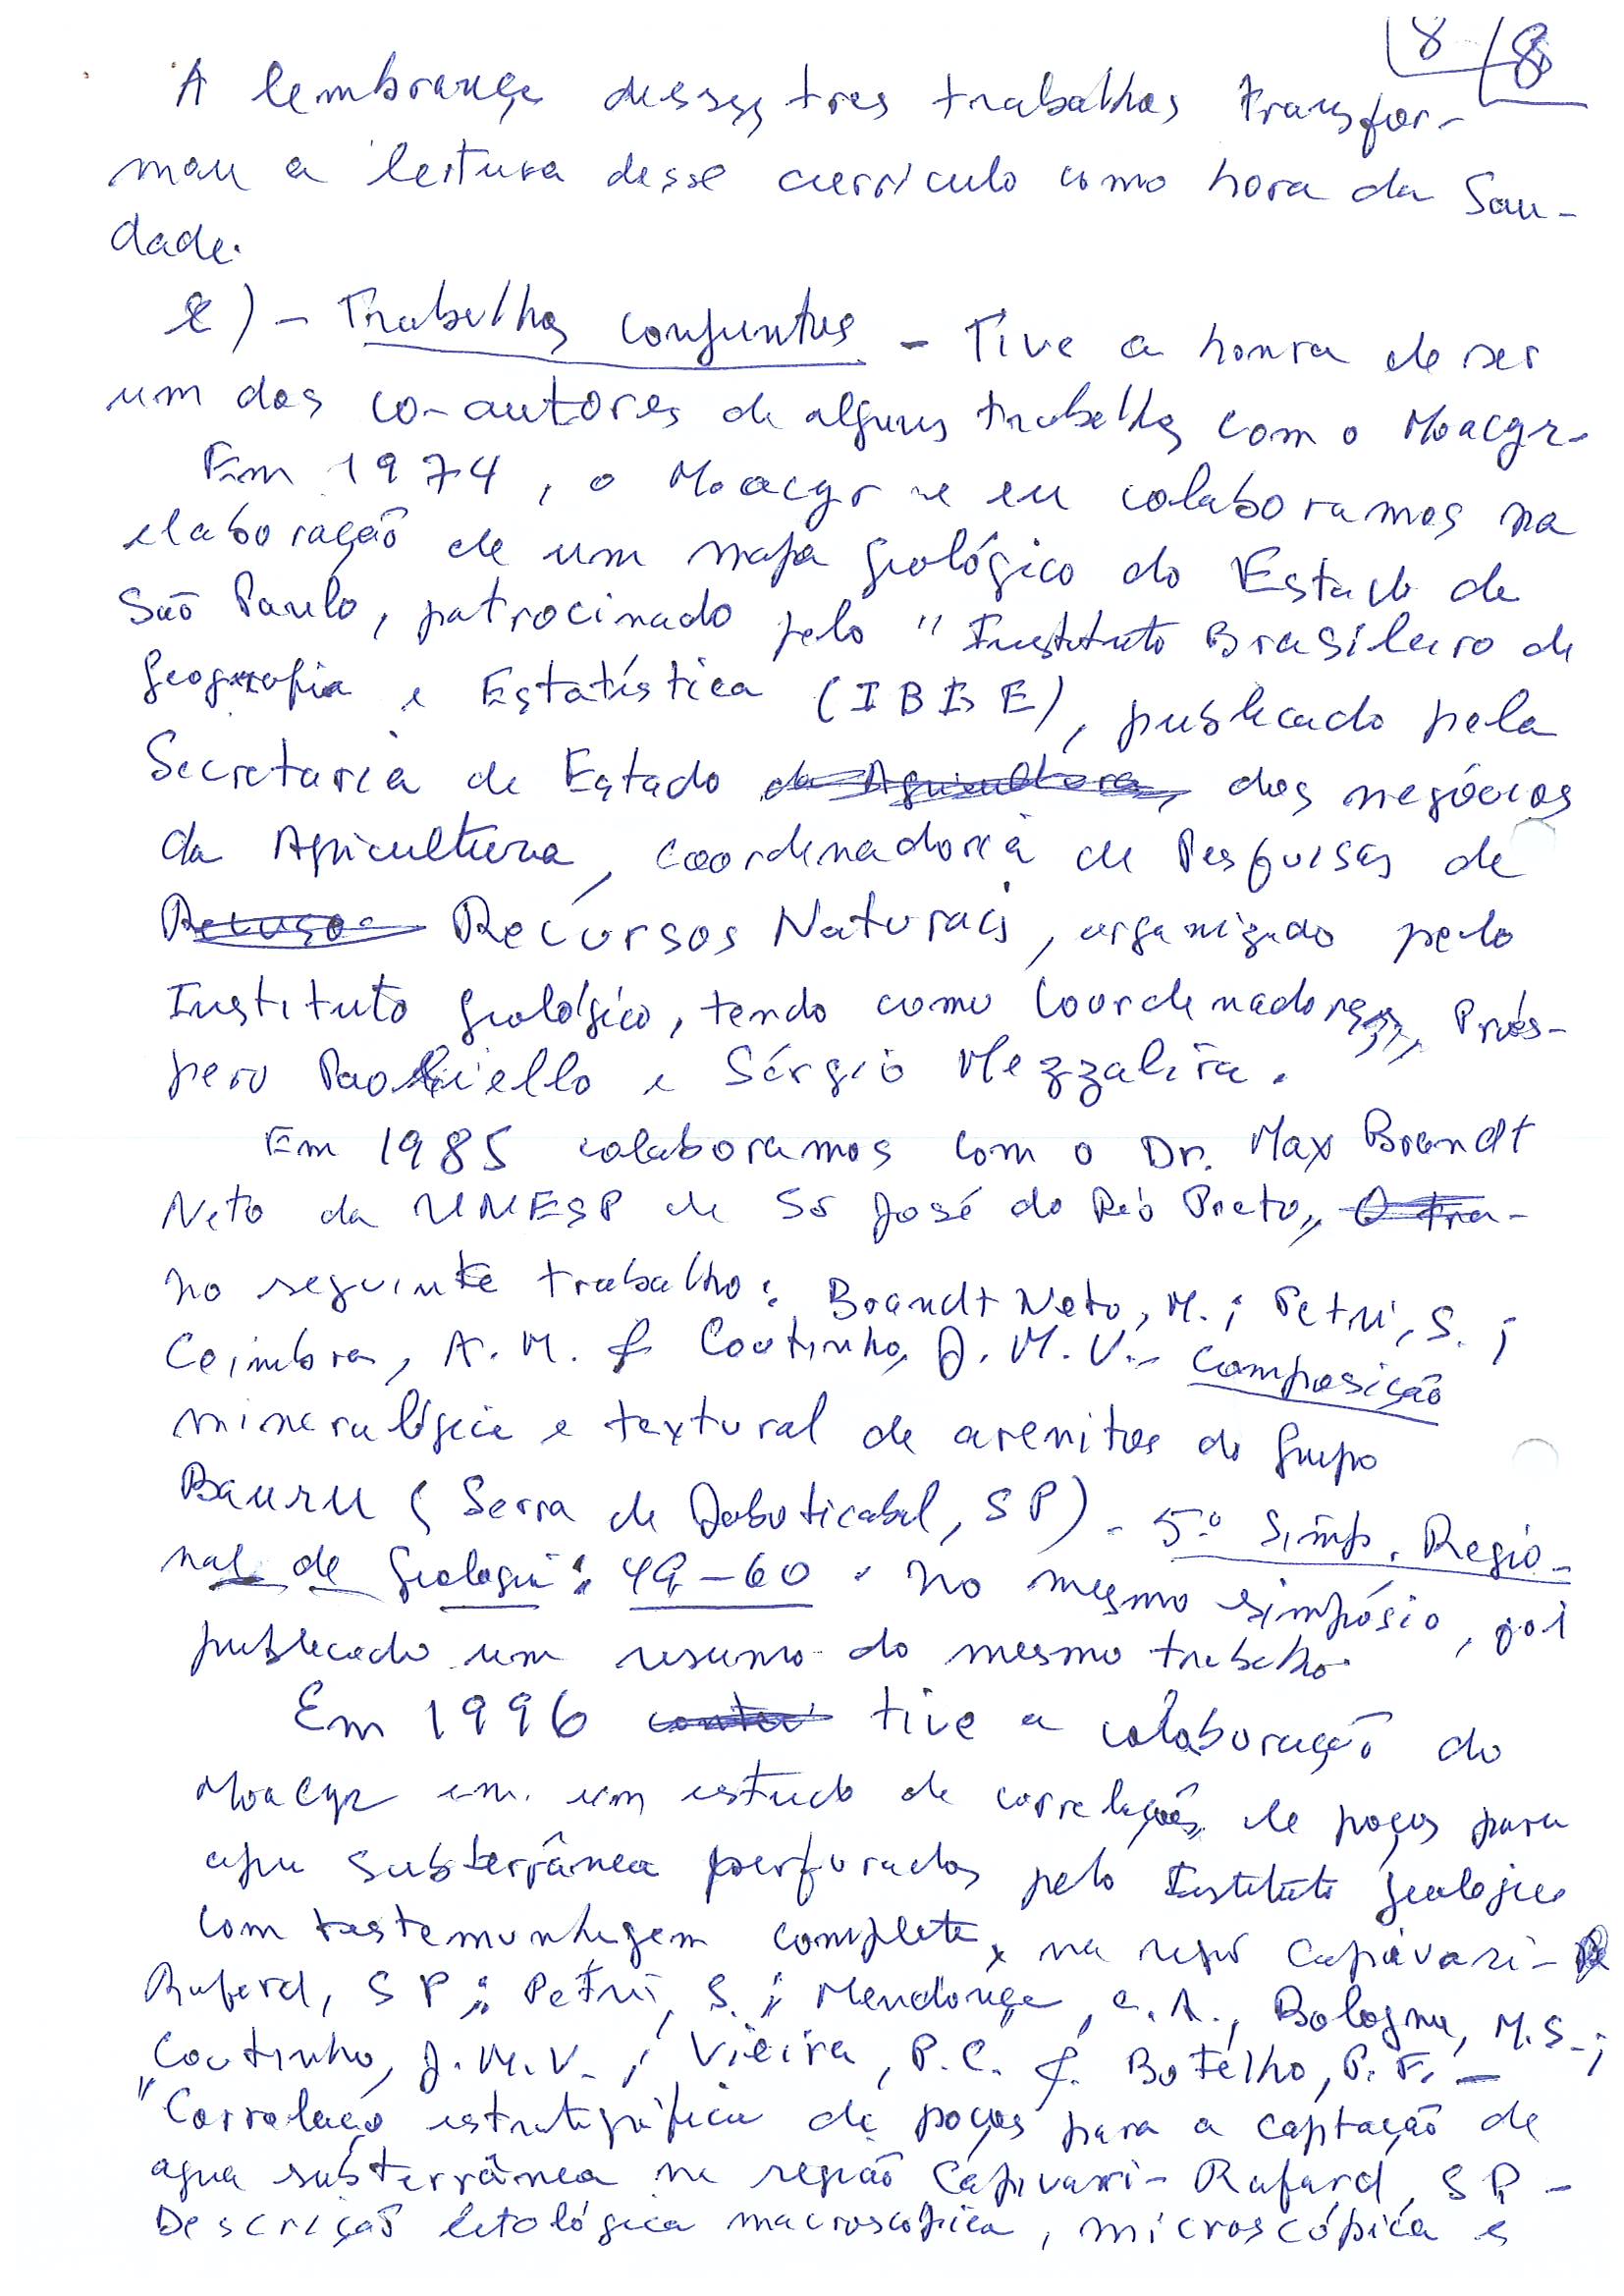 8/8
A lembrança desses tres trabalhos transfor-
mou a leitura desse curriculo como hora da Sau-
dade.
e) - Trabalhos conjuntos - Tive a honra de ser
um dos co-autores de alguns trabalhos com o Moacyr.
Em 1974, o Moacyr e eu colaboramos na
elaboração de um mapa geológico do Estado de
São Paulo, patrocinado pelo "Instituto Brasileiro de
Geografia e Estatística (IBGE), publicado pela
Secretaria de Estado da Agricultura, dos negócios
da Agricultura, Coordenadoria de Pesquisas de
Recurso Recursos Naturais, organizado pelo
Instituto Geológico, tendo como Coordenadores, Prós-
pero Paoliello e Sérgio Mezzalira.
Em 1985 colaboramos com o Dr. Max Brandt
Neto da UNESP de S. José do Rio Preto, O tra-
no seguinte trabalho: Brandt Neto, M.; Petri, S.;
Coimbra, A. M. & Coutinho, J. M. V. - Composição
mineralógica e textural de arenitos do Grupo
Bauru (Serra de Jaboticabal, SP). 5º Simp. Regio-
nal de Geologia: 49-60. No mesmo simpósio, foi
publicado um resumo do mesmo trabalho.
Em 1996 tive a colaboração do
Moacyr em um estudo de correlações de poços para
agua subterrânea perfurados pelo Instituto Geologico
com testemunhagem completa, na região Capivari-
Rafard, SP: Petri, S.; Mendonça, C. A., Bologna, M.S.;
Coutinho, J. M. V.; Vieira, P. C. & Botelho, P. F. -
"Correlação estratigráfica de poços para a captação de
agua subterrânea na região Capivari - Rafard, SP -
Descrição litológica macroscópica, microscópica e